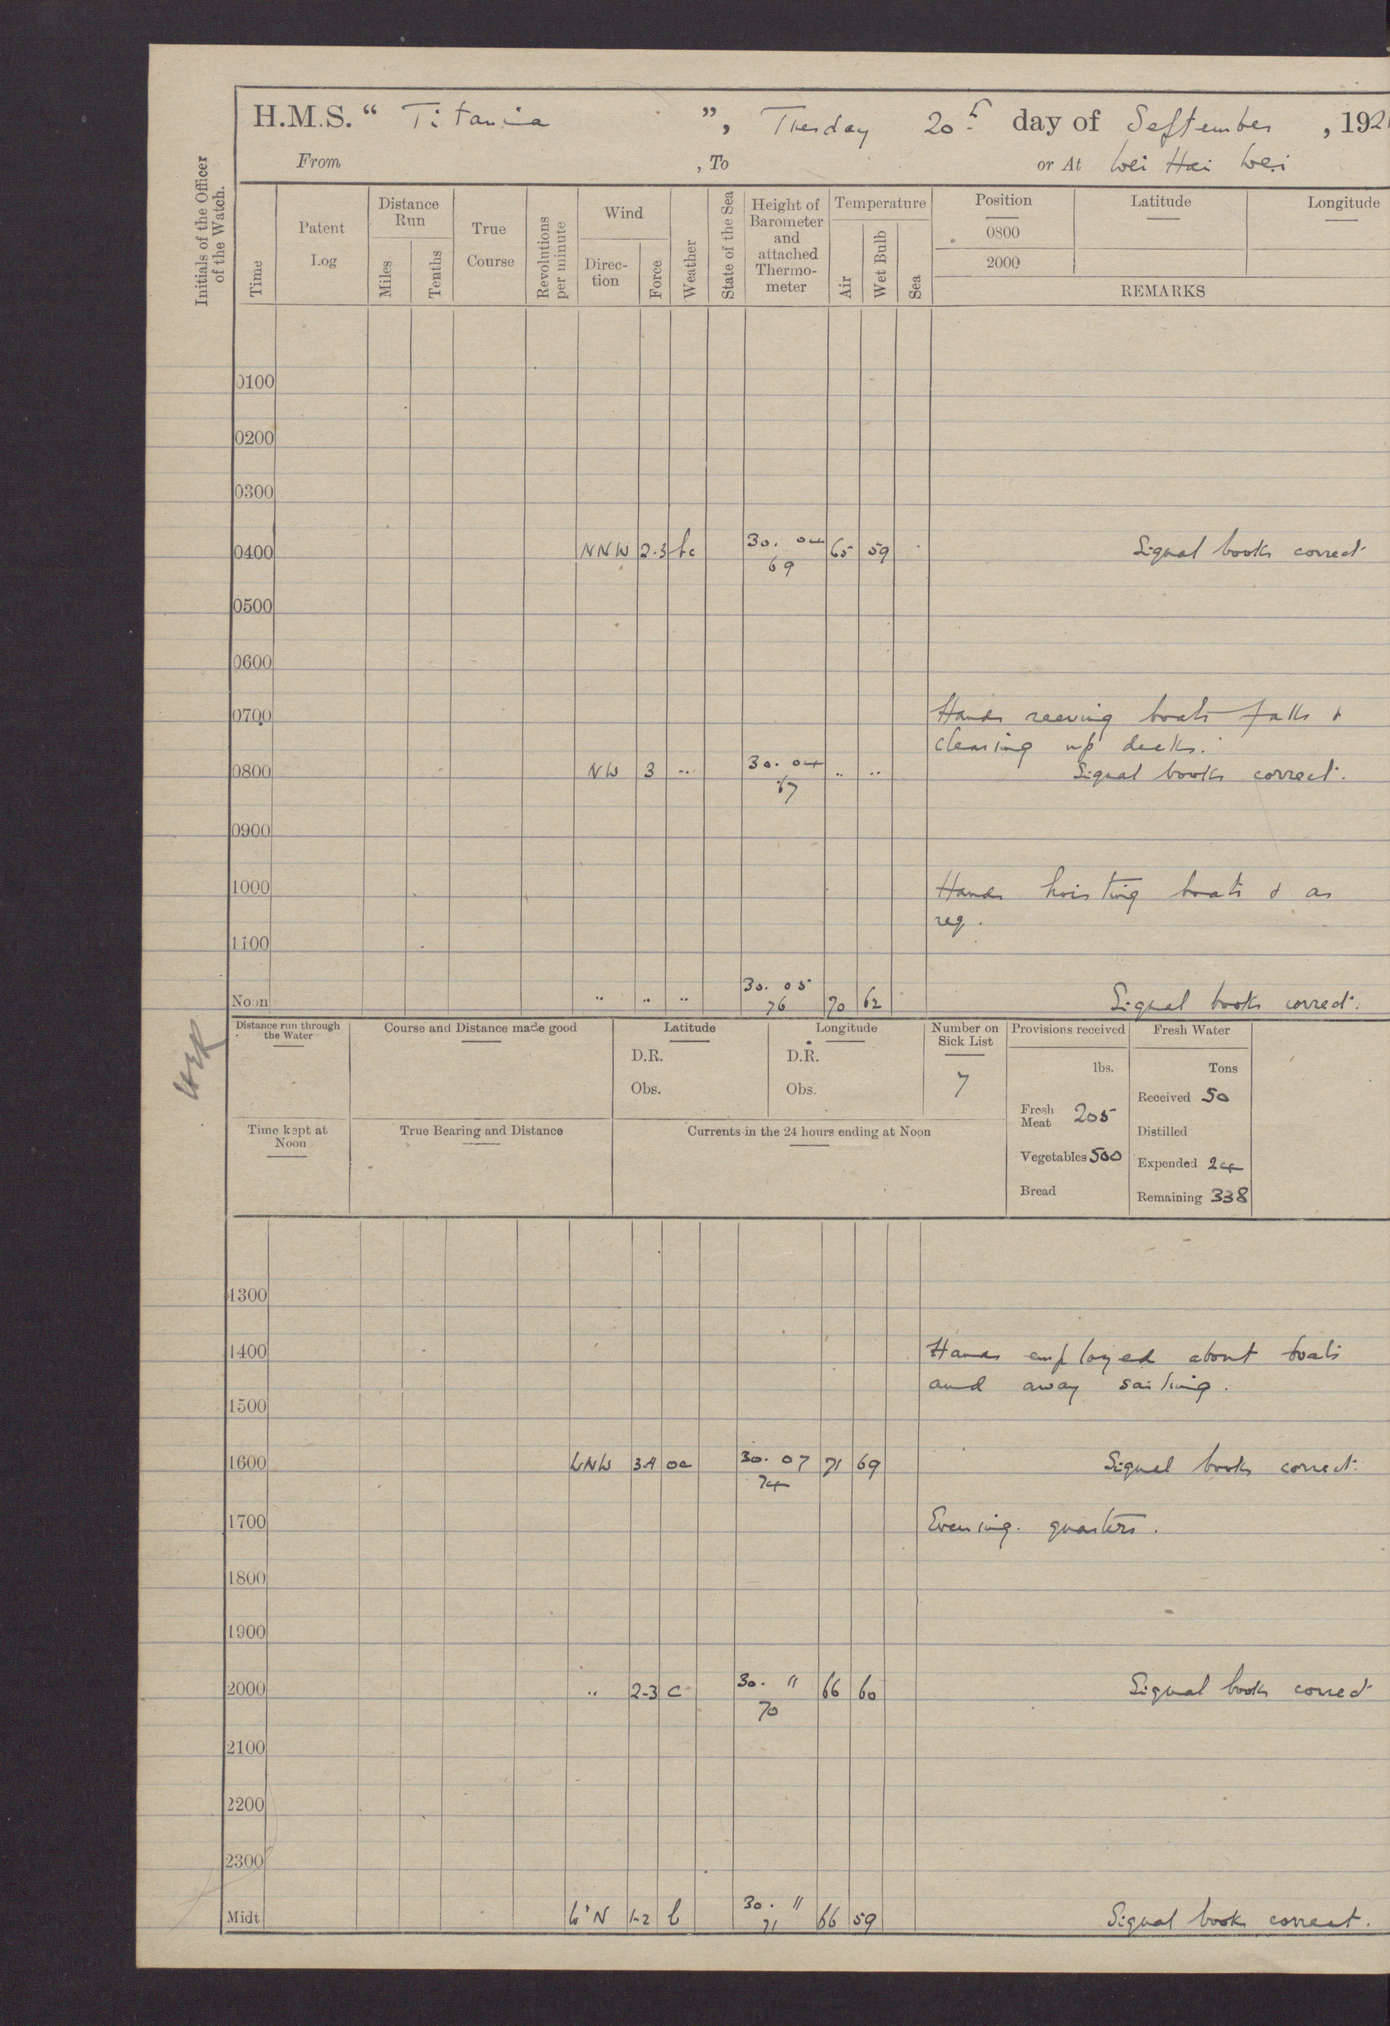 H.M.S. “ Titania ”, Tuesday 20th day of September , 192
From , To or At Wei Hai Wei
Initials of the Officer of the Watch.
Time
Patent Log
Distance Run
Miles
Tenths
True Course
Revolutions per minute
Wind
Direc-tion
Force
Weather
State of the Sea
Height of Barometer and attached Thermo-meter
Temperature
Air
Wet Bulb
Sea
Position Latitude Longitude
0800
2000
REMARKS
0100
0200
0300
0400 NNW 2.3 bc 30. 04 65 59 Signal books correct
69
0500
0600
0700 Hands reeving boats falls &
clearing up decks.
0800 NW 3 .. 30. 04 .. .. Signal books correct.
67
0900
1000 Hands hoisting boats & as
req.
1100
Noon .. .. .. 30. 05 70 62 Signal books correct.
76
Distance run through the Water
Course and Distance made good
Latitude
D.R.
Obs.
Longitude
D.R.
Obs.
Number on Sick List
7
Provisions received
lbs.
Fresh Meat 205
Vegetables 500
Bread
Fresh Water
Tons
Received 50
Distilled
Expended 24
Remaining 338
Time kept at Noon
True Bearing and Distance
Currents in the 24 hours ending at Noon
1300
1400 Hands employed about boats
and away sailing.
1500
1600 WNW 3.4 oc 30. 07 71 69 Signal books correct.
74
1700 Evening quarters.
1800
1900
2000 .. 2-3 c 30. " 66 60 Signal books correct
70
2100
2200
2300
Midt W'N 1-2 b 30. " 66 59 Signal books correct.
71